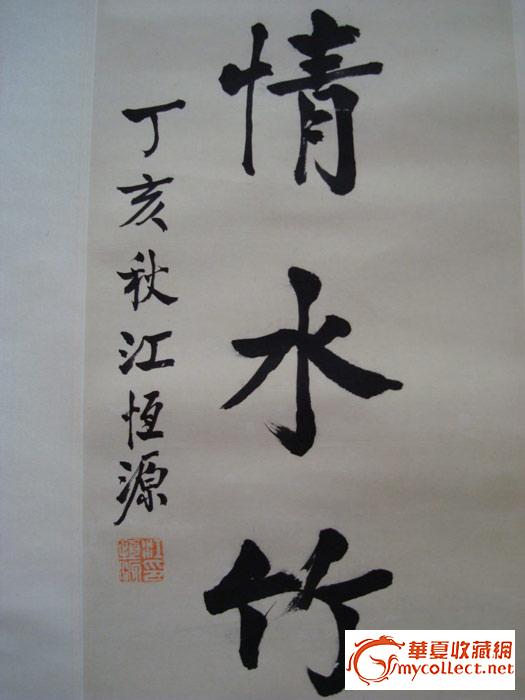 情水竹
丁亥秋江恒源
華夏收藏網
mycollect.net